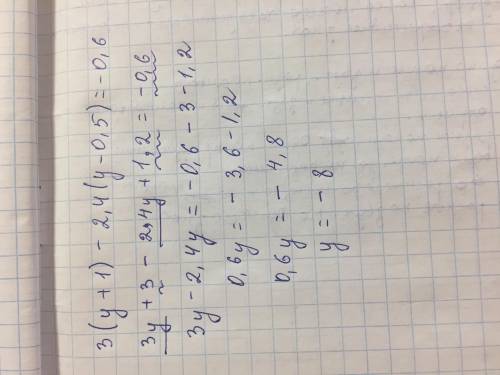 3(y+1) - 2,4(y-0,5) = -0,6
3y + 3 - 2,4y + 1,2 = -0,6
3y - 2,4y = -0,6 - 3 - 1,2
0,6y = - 3,6 - 1,2
0,6y = - 4,8
y = - 8